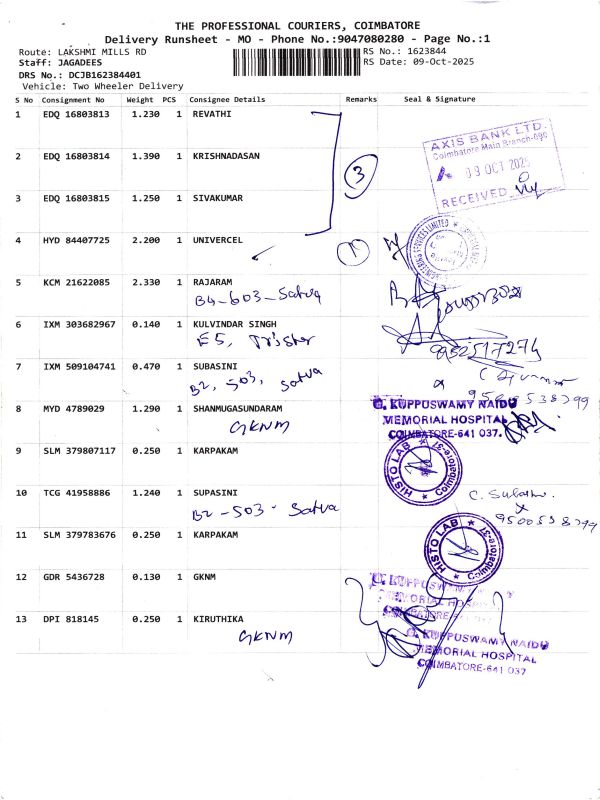 THE PROFESSIONAL COURIERS, COIMBATORE
Delivery Runsheet - MO - Phone No.:9047080280 - Page No.:1
Route: LAKSHMI MILLS RD RS No.: 1623844
Staff: JAGADEES RS Date: 09-Oct-2025
DRS No.: DCJB162384401
Vehicle: Two Wheeler Delivery
S No Consignment No Weight PCS Consignee Details Remarks Seal & Signature
1 EDQ 16803813 1.230 1 REVATHI
AXIS BANK LTD.
Coimbatore Main Branch-090
09 OCT 2025
RECEIVED
2 EDQ 16803814 1.390 1 KRISHNADASAN
3
3 EDQ 16803815 1.250 1 SIVAKUMAR
4 HYD 84407725 2.200 1 UNIVERCEL
1
5 KCM 21622085 2.330 1 RAJARAM
B4-603-Satva
6 IXM 303682967 0.140 1 KULVINDAR SINGH
E5, Trister
9952517274
7 IXM 509104741 0.470 1 SUBASINI
B2, 503, Satva
9500538799
8 MYD 4789029 1.290 1 SHANMUGASUNDARAM
GKNM
G. KUPPUSWAMY NAIDU
MEMORIAL HOSPITAL
COIMBATORE-641 037.
9 SLM 379807117 0.250 1 KARPAKAM
HISTO LAB
Coimbatore-37
10 TCG 41958886 1.240 1 SUPASINI
B2-503- Satva
9500538799
11 SLM 379783676 0.250 1 KARPAKAM
HISTO LAB
Coimbatore-37
12 GDR 5436728 0.130 1 GKNM
G. KUPPUSWAMY
MEMORIAL HOSPITAL
COIMBATORE
13 DPI 818145 0.250 1 KIRUTHIKA
GKNM
G. KUPPUSWAMY NAIDU
MEMORIAL HOSPITAL
COIMBATORE-641 037